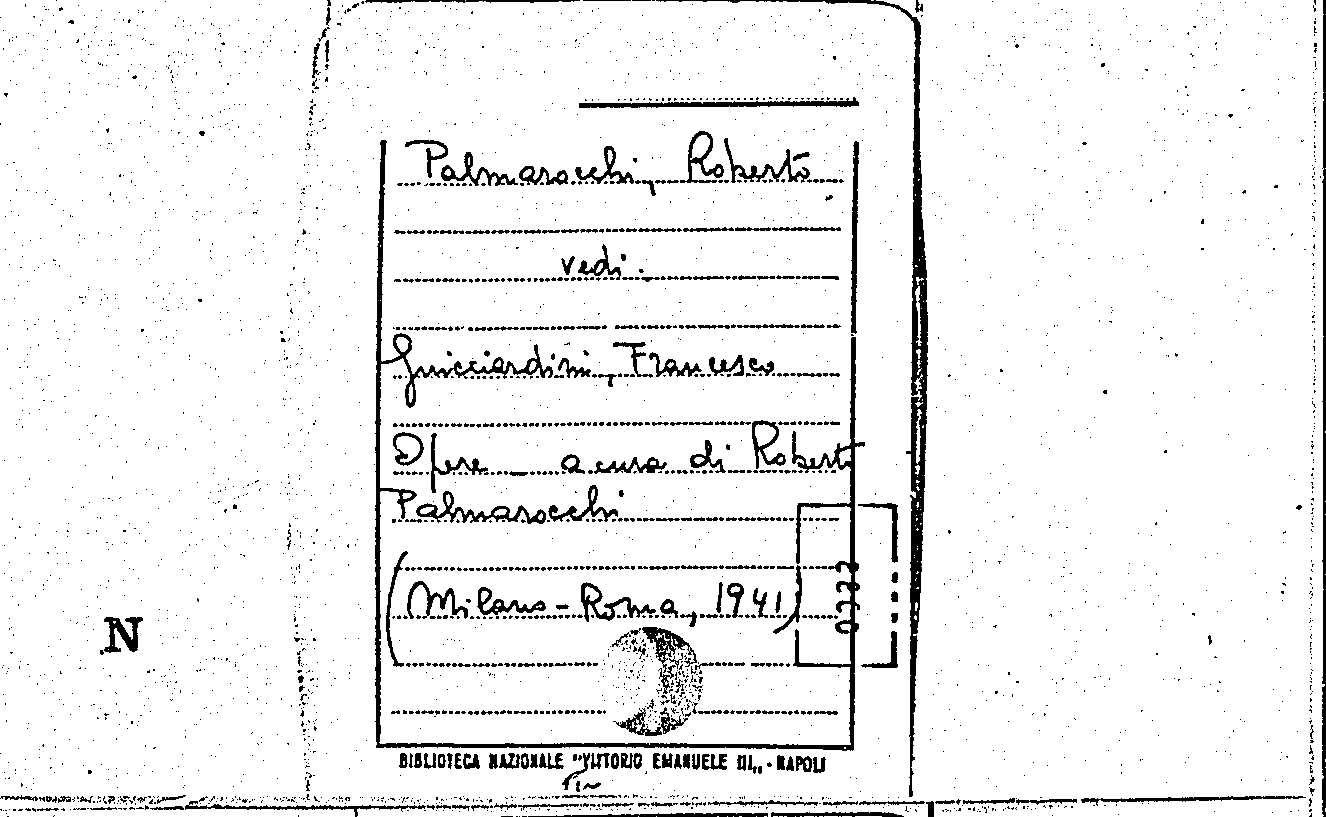 Palmarocchi, Roberto
vedi.
Guicciardini, Francesco
Opere _ a cura di Roberto
Palmarocchi
(Milano - Roma, 1941)
N
BIBLIOTECA NAZIONALE "VITTORIO EMANUELE III" - NAPOLI